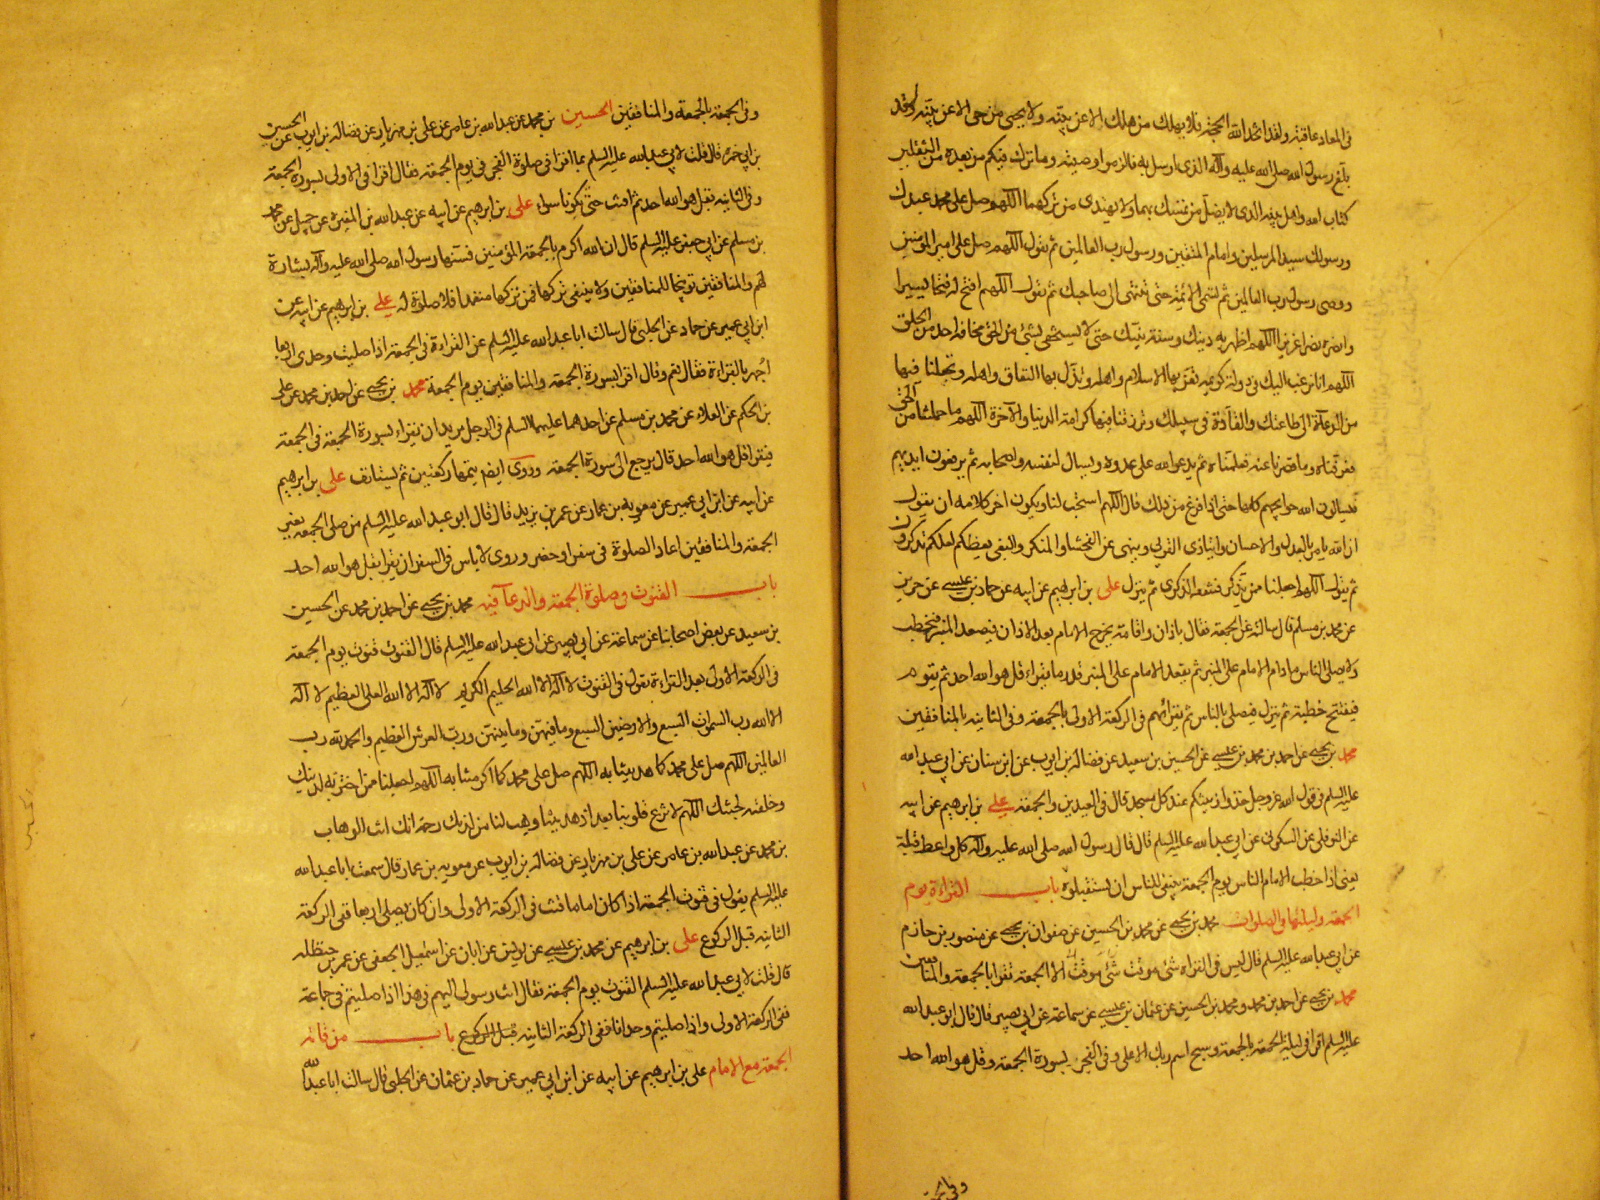 فى المعاد عاقبة ولقد اتخذ الله الحجة فلا يهلك من هلك الا عن بينة ولا يحيى من حى الا عن بينة وقد
بلغ رسول الله صلى الله عليه وآله الذى ارسل به فالزموا وصيته وما ترك فيكم من بعده من الثقلين
كتاب الله واهل بيته الذى لا يضل من تمسك بهما ولا يهتدى من تركهما اللهم صل على محمد عبدك
ورسولك سيد المرسلين وامام المتقين ورسول رب العالمين ثم يقول اللهم صل على امير المؤمنين
ووصى رسول رب العالمين ثم تسمى الائمة حتى تنتهى الى صاحبك ثم يقول اللهم افتح له فتحا يسيرا
وانصره نصرا عزيزا اللهم اظهر به دينك وسنة نبيك حتى لا يستخفى بشئ من الحق مخافة احد من الخلق
اللهم انا نرغب اليك فى دولة كريمة تعز بها الاسلام واهله وتذل بها النفاق واهله وتجعلنا فيها
من الدعاة الى طاعتك والقادة فى سبيلك وترزقنا فيها كرامة الدنيا والآخرة اللهم ما حملتنا من الحق
فعرفناه وما قصرنا عنه فعلمناه ثم يدعو الله على عدوه ويسال لنفسه واصحابه ثم يرفعون ايديهم
فيسالون الله حوائجهم كلها حتى اذا فرغ من ذلك قال اللهم استجب لنا ويكون اخر كلامه ان يقول
ان الله يامر بالعدل والاحسان وايتاذى القربى وينهى عن الفحشا والمنكر والبغى يعظكم لعلكم تذكرون
ثم يقول اللهم اجعلنا ممن تذكر فتنفعه الذكرى ثم ينزل على بن ابرهيم عن ابيه عن حماد بن عيسى عن حريز
عن محمد بن مسلم قال سالته عن الجمعة فقال باذان واقامة يخرج الامام بعد الاذان فيصعد المنبر فيخطب
ولا يصلى الناس ما دام الامام على المنبر ثم يقعد الامام على المنبر قدر ما يقراء قل هو الله احد ثم يقوم
فيفتتح خطبة ثم ينزل فيصلى بالناس ثم يقراء بهم فى الركعة الاولى بالجمعة وفى الثانية بالمنافقين
محمد بن يحيى عن احمد بن محمد بن عيسى عن الحسين بن سعيد عن فضالة بن ايوب عن ابن سنان عن ابى عبد الله
عليه السلم فى قول الله عز وجل خذوا زينتكم عند كل مسجد قال فى العيدين والجمعة على بن ابرهيم عن ابيه
عن النوفلى عن السكونى عن ابى عبد الله عليه السلم قال قال رسول الله صلى الله عليه وآله كل واعظ قبلة
يعنى اذا خطب الامام الناس يوم الجمعة ينبغى للناس ان يستقبلوه باب القراءة يوم
الجمعة وليلتها فى الصلوات محمد بن يحيى عن محمد بن الحسين عن صفوان بن يحيى عن منصور بن حازم
عن ابى عبد الله عليه السلم قال ليس فى القراه شئ موقت الا الجمعة تقرا بالجمعة والمنافقين
محمد بن يحيى عن احمد بن محمد ومحمد بن الحسين عن عثمان بن عيسى عن سماعة عن ابى بصير قال قال ابو عبد الله
عليه السلم اقرا فى ليلة الجمعة بالجمعة وسبح اسم ربك الاعلى وفى الفجر بسورة الجمعة وقل هو الله احد
وفى الجمعة
وفى الجمعة بالجمعة والمنافقين الحسين بن محمد عن عبد الله بن عامر عن على بن مهزيار عن فضالة بن ايوب عن الحسين
بن ابى حمزه قال قلت لابى عبد الله عليه السلم بما اقرا فى صلوة الفجر فى يوم الجمعة فقال اقرا فى الاولى بسورة الجمعة
وفى الثانية بقل هو الله احد ثم اقنت حتى يكونا سواء على بن ابرهيم عن ابيه عن عبد الله بن المغيرة عن جميل عن محمد
بن مسلم عن ابى جعفر عليه السلم قال ان الله اكرم بالجمعة المؤمنين فسنها رسول الله صلى الله عليه وآله بشارة
لهم والمنافقين توبيخا للمنافقين ولا ينبغى تركها فمن تركها متعمدا فلا صلوة له على بن ابرهيم عن ابيه عن
ابن ابى عمير عن حماد عن الحلبى قال سالت ابا عبد الله عليه السلم عن القراءة فى الجمعة اذا صليت وحدى اربعا
اجهر بالقراءة فقال نعم وقال اقرا بسورة الجمعة والمنافقين يوم الجمعة محمد بن يحيى عن احمد بن محمد عن على
بن الحكم عن العلاء عن محمد بن مسلم عن احدهما عليهما السلم فى الرجل يريد ان يقراء بسورة الجمعة فى الجمعة
فيقرا قل هو الله احد قال يرجع الى سورة الجمعة وروى ايضا يتمها ركعتين ثم يستانف على بن ابرهيم
عن ابيه عن ابن ابى عمير عن معويه بن عمار عن عمر بن يزيد قال قال ابو عبد الله عليه السلم من صلى الجمعة بغير
الجمعة والمنافقين اعاد الصلوة فى سفر او حضر وروى لا باس فى السفر ان يقرا بقل هو الله احد
باب القنوت فى صلوة الجمعة والدعآ فيه محمد بن يحيى عن احمد بن محمد عن الحسين
بن سعيد عن بعض اصحابنا عن سماعة عن ابى بصير عن ابى عبد الله عليه السلم قال القنوت قنوت يوم الجمعة
فى الركعة الاولى بعد القراءة تقول فى القنوت لا آله الا الله الحليم الكريم لا آله الا الله العلى العظيم لا آله
الا الله رب السموات السبع والارضين السبع وما فيهن وما بينهن ورب العرش العظيم والحمد لله رب
العالمين اللهم صل على محمد كما هديتنا به اللهم صل على محمد كما اكرمتنا به اللهم اجعلنا ممن اخترته لدينك
وخلقته لجنتك اللهم لا تزغ قلوبنا بعد اذ هديتنا وهب لنا من لدنك رحمة انك انت الوهاب
بن محمد عن عبد الله بن عامر عن على بن مهزيار عن فضالة بن ايوب عن معويه بن عمار قال سمعت ابا عبد الله
عليه السلم يقول فى قنوت الجمعة اذا كان اماما قنت فى الركعة الاولى وان كان يصلى اربعا ففى الركعة
الثانية قبل الركوع على بن ابرهيم عن محمد بن عيسى عن يونس عن ابان عن اسمعيل الجعفى عن عمر بن حنظله
قال قلت لابى عبد الله عليه السلم القنوت يوم الجمعة فقال انت رسولى اليهم فى هذا اذا صليتم فى جماعة
ففى الركعة الاولى واذا صليتم وحدانا ففى الركعة الثانية قبل الركوع باب من فاته
الجمعة مع الامام على بن ابرهيم عن ابيه عن ابن ابى عمير عن حماد بن عثمان عن الحلبى قال سالت ابا عبد الله